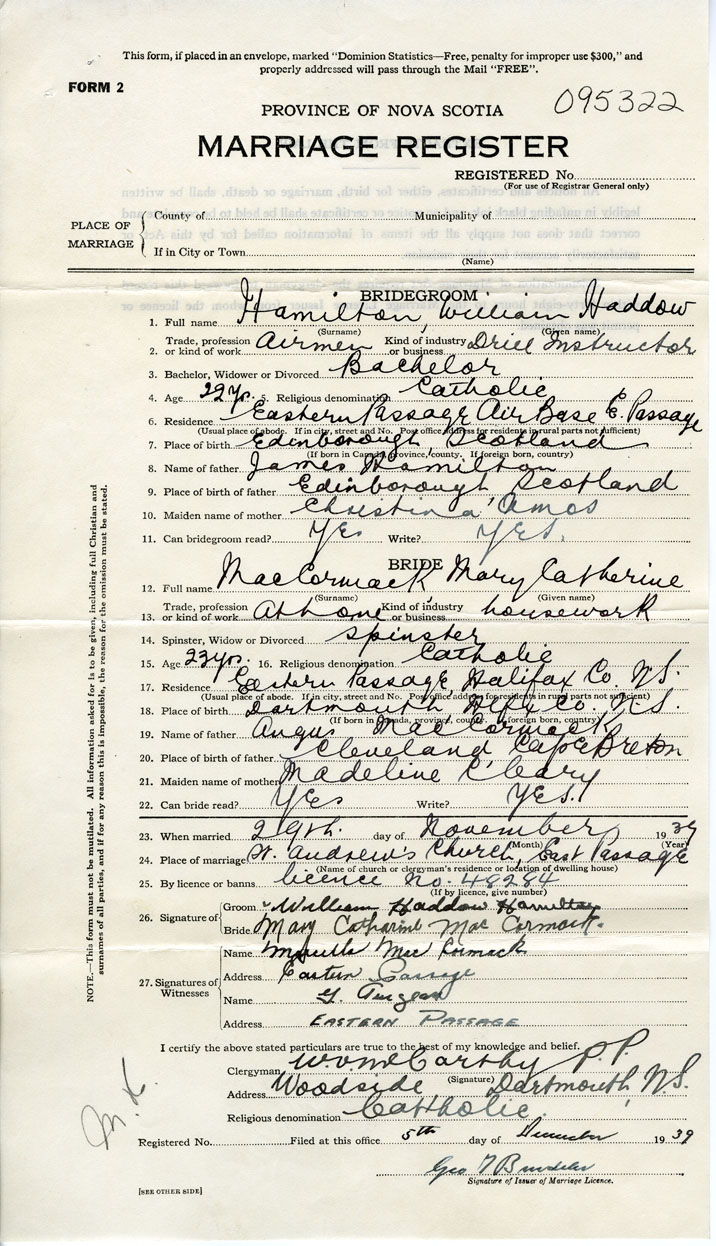 This form, if placed in an envelope, marked "Dominion Statistics—Free, penalty for improper use $300," and
properly addressed will pass through the Mail "FREE".
FORM 2
095322
PROVINCE OF NOVA SCOTIA
MARRIAGE REGISTER
REGISTERED No.
(For use of Registrar General only)
PLACE OF MARRIAGE
County of Municipality of
If in City or Town
(Name)
BRIDEGROOM
1. Full name Hamilton, William Haddow
(Surname) (Given name)
2. Trade, profession or kind of work Airmen Kind of industry or business Drill Instructor
3. Bachelor, Widower or Divorced Bachelor
4. Age 22 yr. 5. Religious denomination Catholic
6. Residence Eastern Passage Air Base E. Passage
(Usual place of abode. If in city, street and No. Post office address for residents in rural parts not sufficient)
7. Place of birth Edinborough, Scotland
(If born in Canada, province, county. If foreign born, country)
8. Name of father James Hamilton
9. Place of birth of father Edinborough Scotland
10. Maiden name of mother Christina Amos
11. Can bridegroom read? Yes Write? Yes.
BRIDE
12. Full name MacCormack Mary Catherine
(Surname) (Given name)
13. Trade, profession or kind of work At home Kind of industry or business housework
14. Spinster, Widow or Divorced spinster
15. Age 23 yr. 16. Religious denomination Catholic
17. Residence Eastern Passage Halifax Co. N.S.
(Usual place of abode. If in city, street and No. Post office address for residents in rural parts not sufficient)
18. Place of birth Dartmouth Hlfx Co. N.S.
(If born in Canada, province, county. If foreign born, country)
19. Name of father Angus MacCormack
20. Place of birth of father Cleveland Cape Breton
21. Maiden name of mother Madeline C'leary
22. Can bride read? Yes Write? Yes.
23. When married 29th. day of November 1939
(Month) (Year)
24. Place of marriage St. Andrew's Church, East Passage
(Name of church or clergyman's residence or location of dwelling house)
25. By licence or banns licence no. 48284
(If by licence, give number)
26. Signature of Groom William Haddow Hamilton
Bride Mary Catharine Mac Cormack.
27. Signatures of Witnesses
Name Mac Cormack
Address Eastern Passage
Name G.
Address EASTERN PASSAGE
I certify the above stated particulars are true to the best of my knowledge and belief.
Clergyman McCarthy P.P.
(Signature)
Address Woodside Dartmouth, N.S.
Religious denomination Catholic.
Registered No. Filed at this office 5th day of December 1939
Geo
Signature of Issuer of Marriage Licence.
[SEE OTHER SIDE]
NOTE.—This form must not be mutilated. All information asked for is to be given, including full Christian and
surnames of all parties, and if for any reason this is impossible, the reason for the omission must be stated.
M.K.